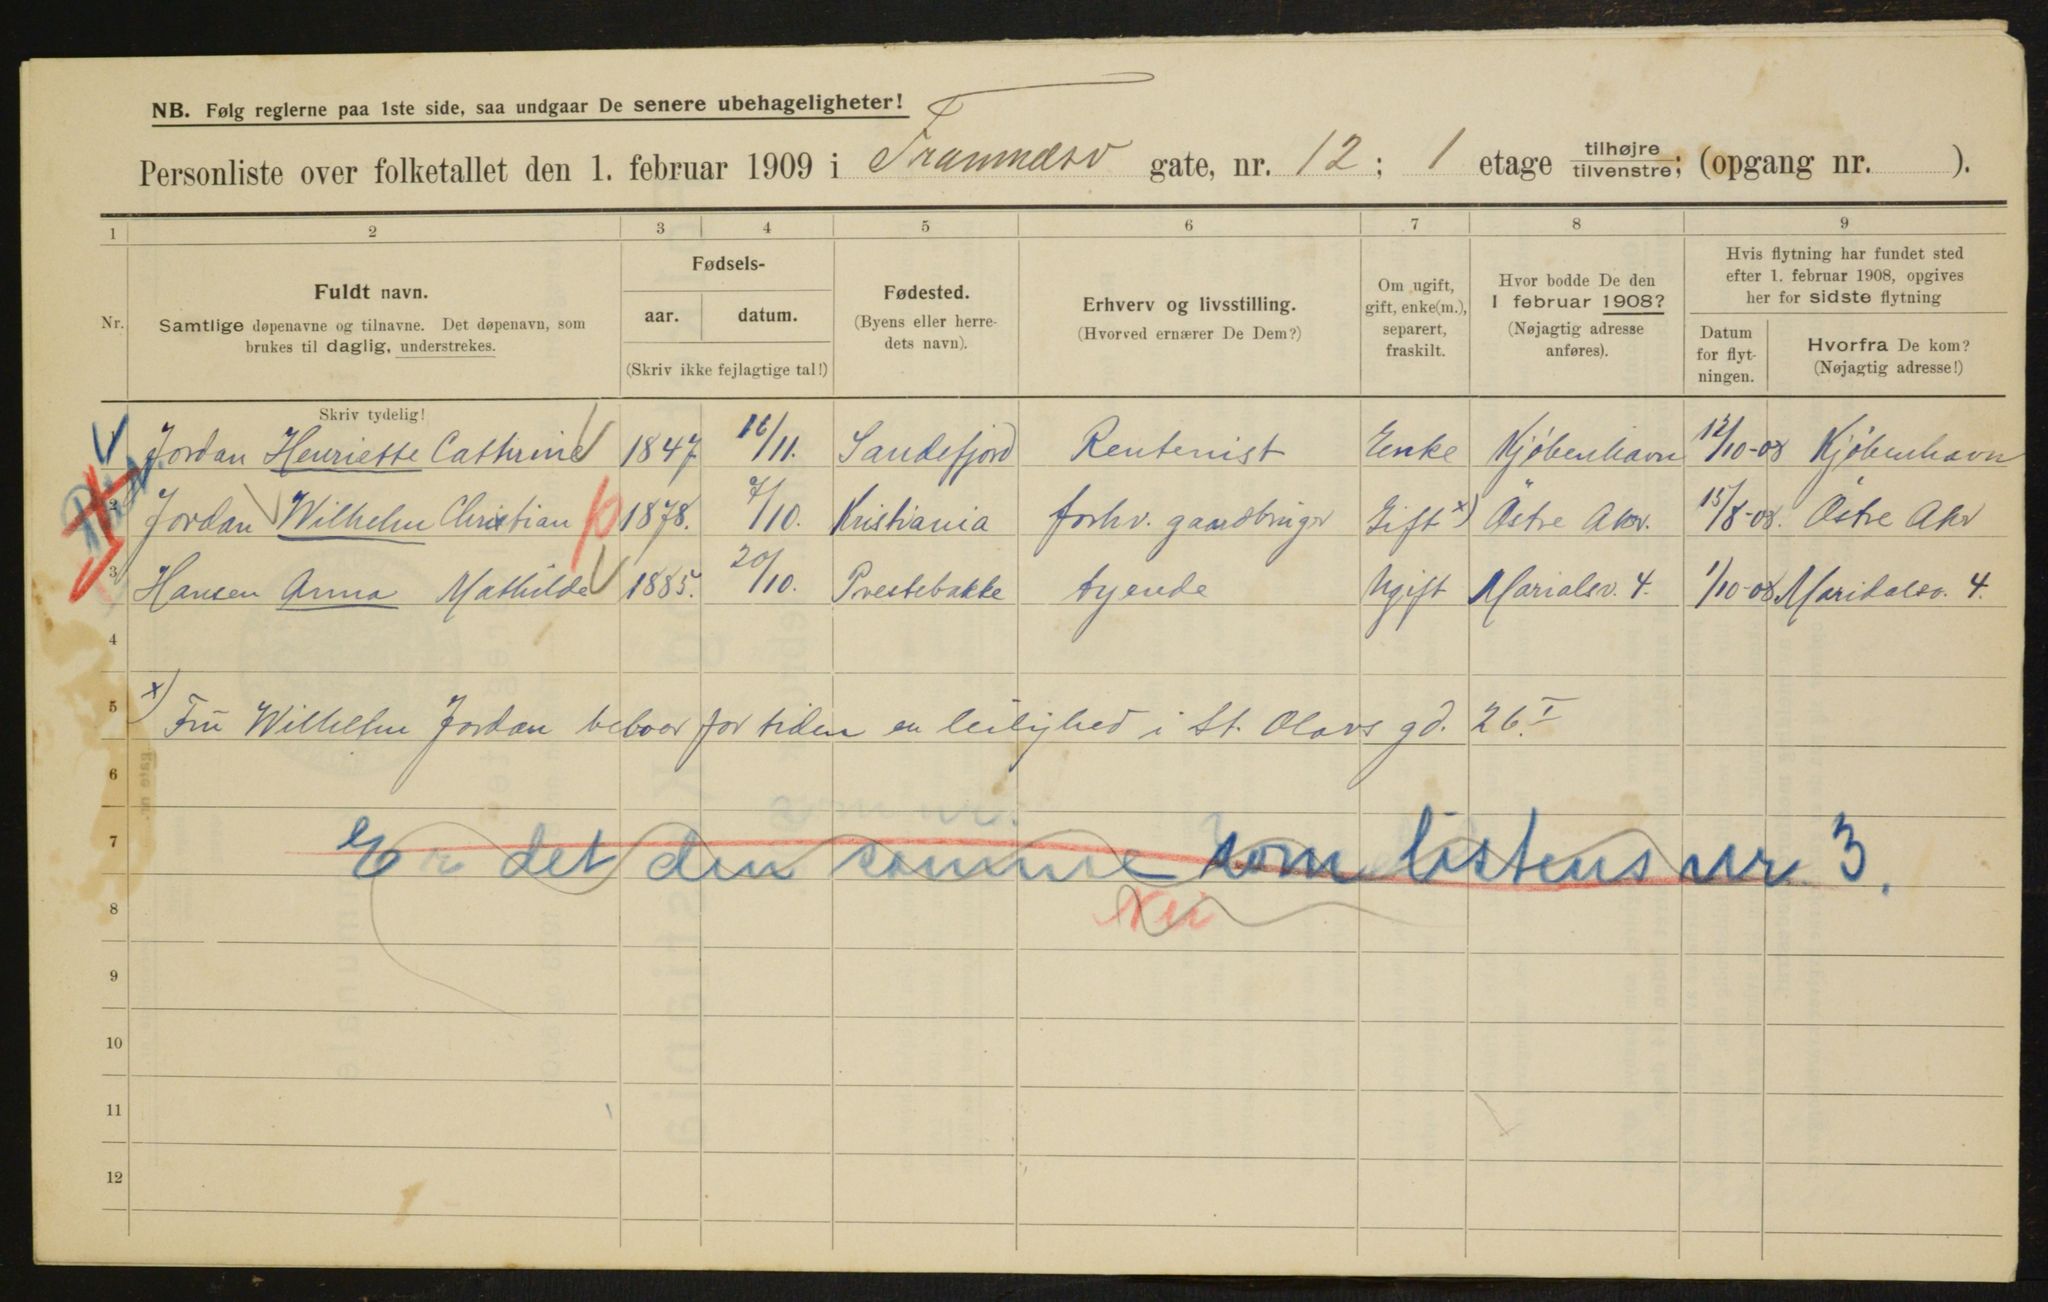 NB. Følg reglerne paa 1ste side, saa undgaar De senere ubehageligheter!
Personliste over folketallet den 1. februar 1909 i Framnæsv gate, nr. 12 ; 1 etage tilhøjre tilvenstre; (opgang nr. ).
1 2 3 4 5 6 7 8 9
Nr.
Fuldt navn.
Samtlige døpenavne og tilnavne. Det døpenavn, som
brukes til daglig, understrekes.
Skriv tydelig!
Fødsels-
aar. datum.
(Skriv ikke fejlagtige tal!)
Fødested.
(Byens eller herre-
dets navn).
Erhverv og livsstilling.
(Hvorved ernærer De Dem?)
Om ugift,
gift, enke(m.),
separert,
fraskilt.
Hvor bodde De den
1 februar 1908?
(Nøjagtig adresse
anføres).
Hvis flytning har fundet sted
efter 1. februar 1908, opgives
her for sidste flytning
Datum
for flyt-
ningen.
Hvorfra De kom?
(Nøjagtig adresse!)
1 Jordan Henriette Cathrine 1847. 16/11. Sandefjord Rentenist Enke Kjøbenhavn 12/10-08 Kjøbenhavn
2 Jordan Wilhelm Christian 1878. 7/10. Kristiania forhv. gaardbruger Gift x) Östre Aker. 15/8-08. Östre Aker
3 Hansen Anna Mathilde 1885. 20/10. Prestebakke tyende Ugift Marialsv. 4. 1/10-08 Maridalsv. 4.
4
5 x) Fru Wilhelm Jordan beboer for tiden en leilighed i St. Olavs gd. 26 I.
6
7 Er det den samme som listens nr 3.
8
9
10
11
12